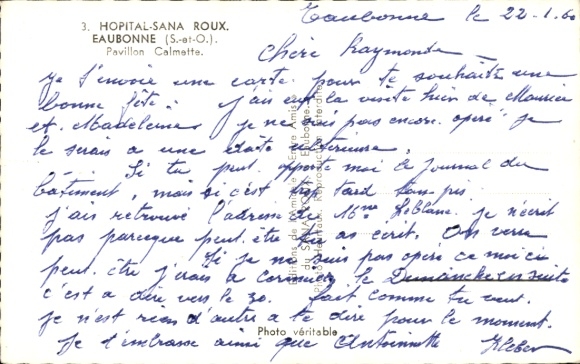 3. HOPITAL-SANA ROUX.
EAUBONNE (S.-et-O.)
Pavillon Calmette.
Eaubonne le 22-1.60
Chère Raymonde
je t'envoie une carte pour te souhaiter une
bonne fête. j'ai eu la visite hier de Maurice
et Madeleine je ne suis pas encore opéré je
le serais a une date ultérieure,
Si tu peut apporte moi le journal du
bâtiment, mais si c'est trop tard tans pis
j'ais retrouvé l'adresse du Mme Leblanc. je n'écrit
pas parceque peut être tu as écrit. On verra
Si je ne suis pas opéré ce moi ci
peut être j'irais a le Dimanche
c'est a dire vers le 30. fait comme tu veut.
je n'est rien d'autre a te dire pour le moment.
je t'embrasse ainsi que Antoinette Kleber
Editions de l'Amicale Entre Amis
du SANA-ROUX - Eaubonne
Reproduction interdite
Photo véritable